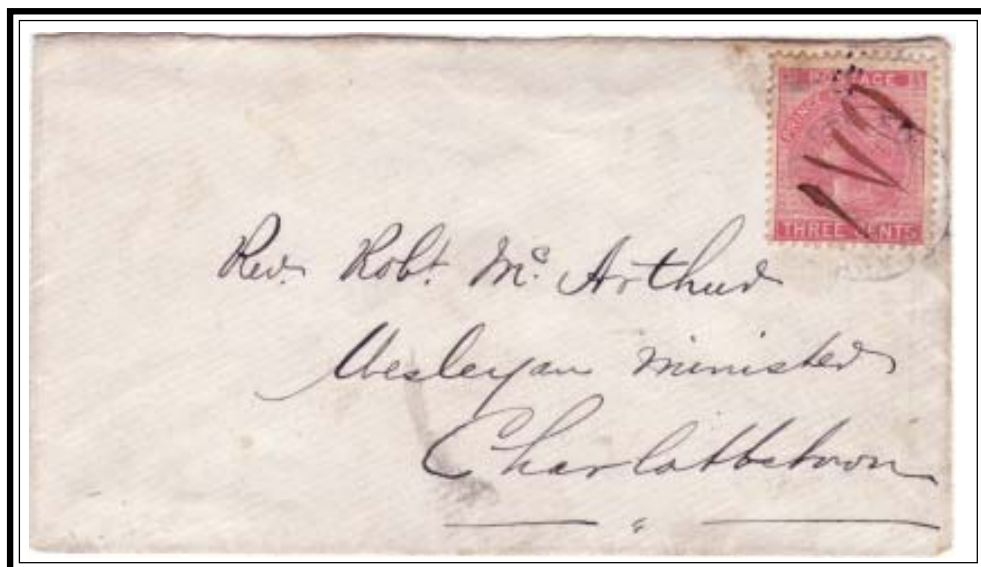 POSTAGE
PRINCE
THREE CENTS
Rev. Robt. Mc. Arthur
Wesleyan Minister
Charlottetown